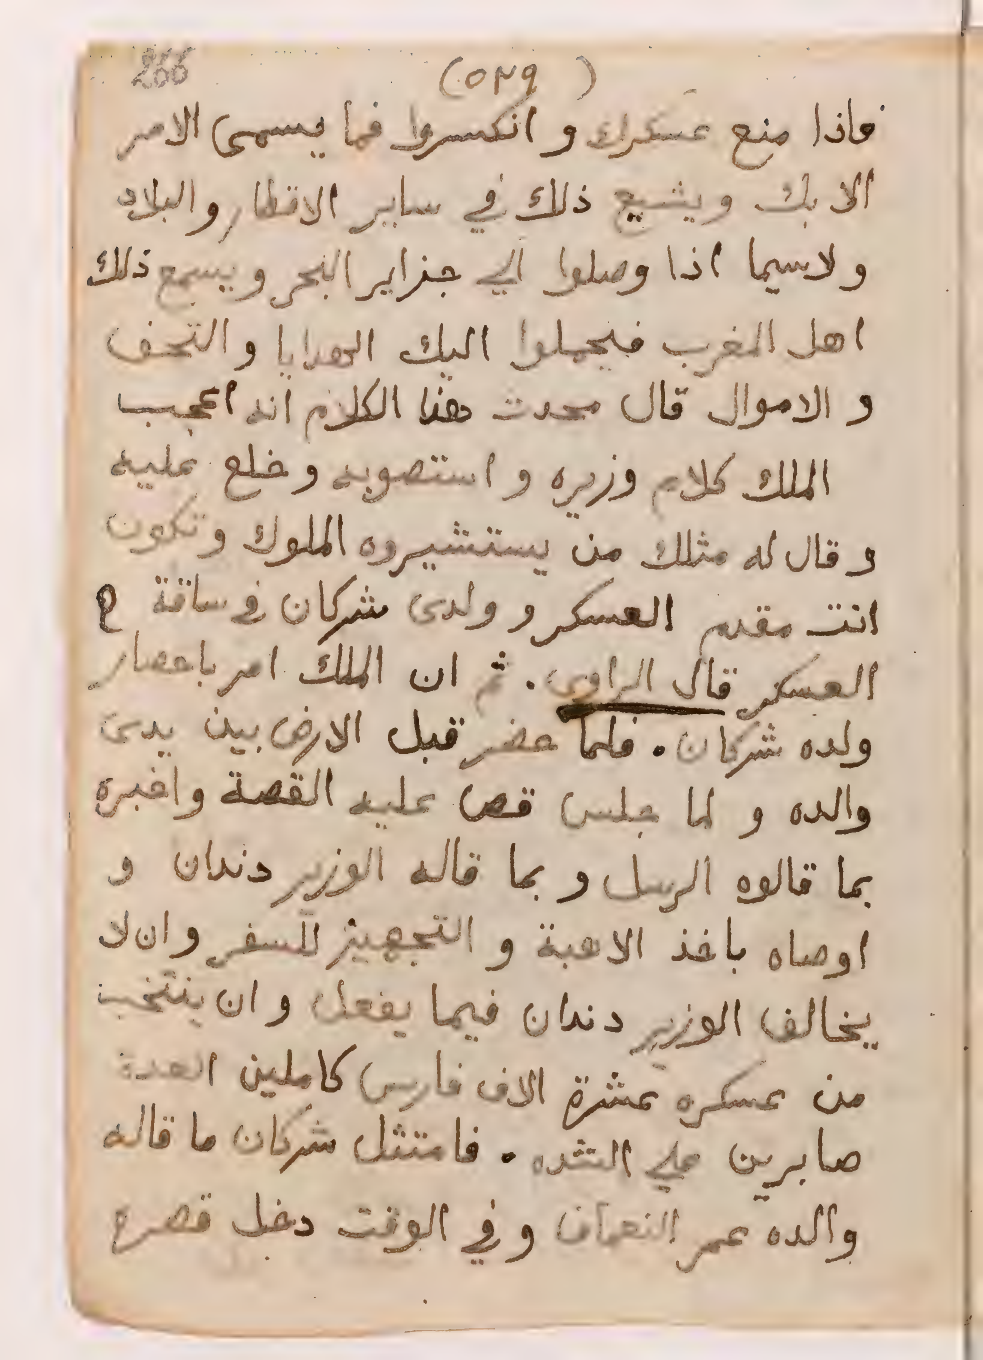 266 (٥٢٩)
فاذا منع عسكرك و انكسروا فما يسمى الامر
الا بك ويشيع ذلك في ساير الاقطار والبلاد
ولاسيما اذا وصلوا الي جزاير البحر ويسمع ذلك
اهل المغرب فيحملوا اليك الهدايا و التحف
و الاموال قال محدث هذا الكلام انه اعجب
الملك كلام وزيره و استصوبه وخلع عليه
وقال له مثلك من يستشيروه الملوك وتكون
انت مقدم العسكر و ولدى شركان في ساقة
العسكر قال الراوى . ثم ان الملك امر باحضار
ولده شركان . فلما حضر قبل الارض بين يدى
والده و لما جلس قص عليه القصة واخبره
بما قالوه الرسل و بما قاله الوزير دندان و
اوصاه باخذ الاهبة و التجهيز للسفر وان لا
يخالف الوزير دندان فيما يفعل وان ينتخب
من عسكره عشرة الاف فارس كاملين العدة
صابرين علي الشده . فامتثل شركان ما قاله
والده عمر النعمان وفي الوقت دخل قصره